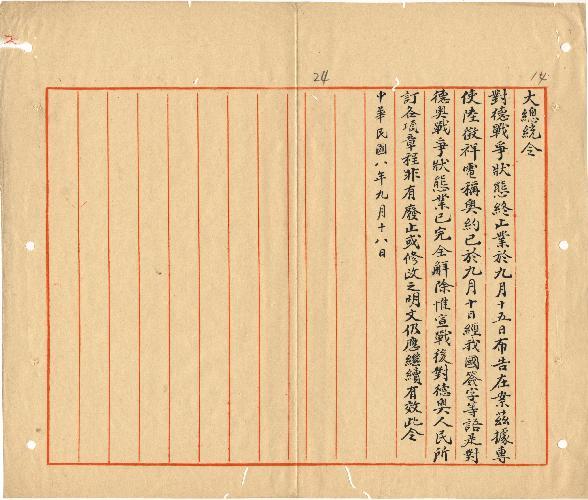 大總統令
對德戰爭狀態終止業於九月十五日布告在案茲據專
使陸徵祥電稱奧約已於九月十日經我國簽字等語是對
德奧戰爭狀態業已完全解除惟宣戰後對德奧人民所
訂各項章程非有廢止或修改之明文仍應繼續有效此令
中華民國八年九月十八日
14
24